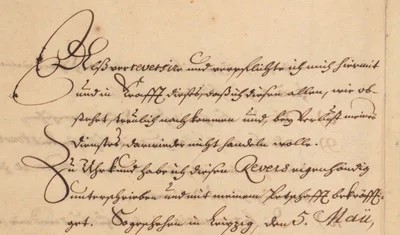 Alß reversire und verpflichte ich mich hiermit
und in Krafft dieses, daß ich diesen allen, wie ob-
stehet, treulich nachkommen und, bey Verlust meines
Dienstes darwieder nicht handeln wolle.
Zu Uhrkund habe ich diesen Revers eigenhändig
unterschrieben und mit meinem Petschafft bekräff-
get. So geschehen in Leipzig, den 5. Maii,